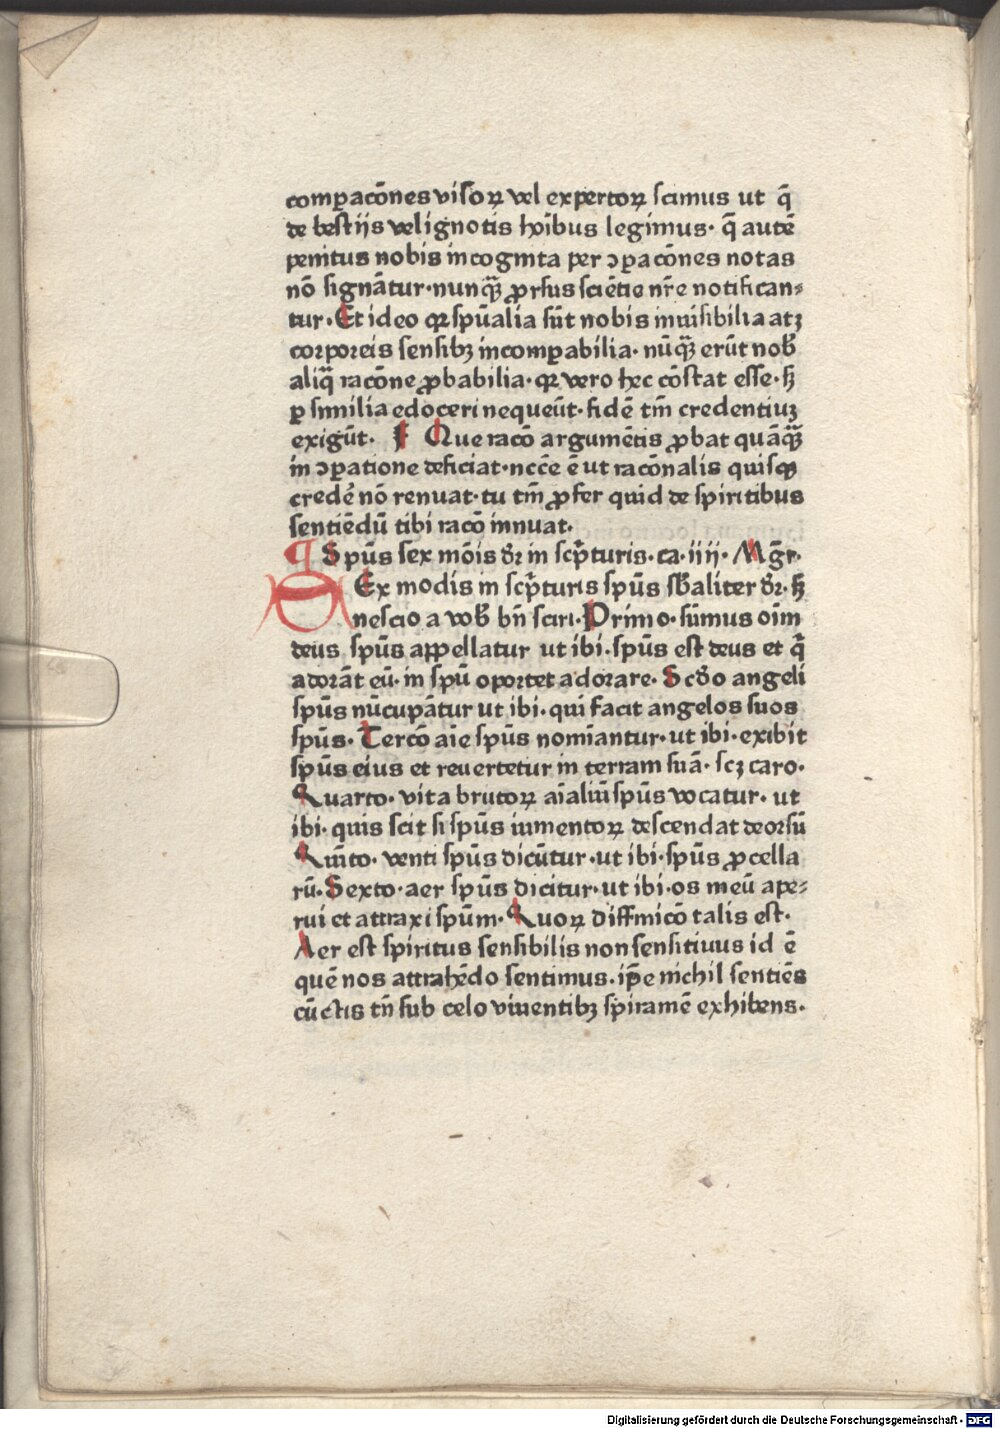 comꝑacōnes visoꝝ vel expertoꝝ scimus ut q̄
de bestijs vel ignotis hoībus legimus· q̄ autē
penitus nobis incognita per ɔꝑacōnes notas
nō signātur·nunq̄ꝫ ꝓrsus sciētie nr̄e notifican⸗
tur·Et ideo qꝛ spūalia sūt nobis inuisibilia atꝫ
corporeis sensibꝫ incomꝑabilia· nūq̄ꝫ erūt nob̄
aliq̄ racōne ꝓbabilia·qꝛ vero hec cōstat esse·sꝫ
ꝑ similia edoceri nequeūt·fidē tm̄ credentiuꝫ
exigūt· I Que racō argumētis ꝓbat quāq̄ꝫ
in ɔꝑatione deficiat·nccē ē ut racōnalis quisqꝫ
credē nō renuat·tu tm̄ ꝓfer quid de spiritibus
sentiēdū tibi racō innuat·
¶ Spūs sex mōis dr̄ in scp̄turis·ca·iiij· Mḡr·
SEx modis in scp̄turis spūs sb̄aliter dr̄·sꝫ
nescio a vob̄ bn̄ sciri·Primo·sūmus oīm
deus spūs appellatur ut ibi·spūs est deus et q̄
adorāt eū·in spū oportet adorare· Scd̄o angeli
spūs nūcupātur ut ibi·qui facit angelos suos
spūs· Tercō aīe spūs nomīantur·ut ibi·exibit
spūs eius et reuertetur in terram suā· scꝫ caro·
Quarto· vita brutoꝝ aīaliū spūs vocatur· ut
ibi·quis scit si spūs iumentoꝝ descendat deorsū
Quīto· venti spūs dicūtur·ut ibi·spūs ꝓcella
rū·Sexto·aer spūs dicitur·ut ibi·os meū ape⸗
rui et attraxi spūm·Quoꝝ diffinicō talis est·
Aer est spiritus sensibilis non sensitiuus id ē
quē nos attrahēdo sentimus·ip̄e nichil sentiēs
cūctis tn̄ sub celo viuentibꝫ spiramē exhibens·
Digitalisierung gefördert durch die Deutsche Forschungsgemeinschaft - DFG